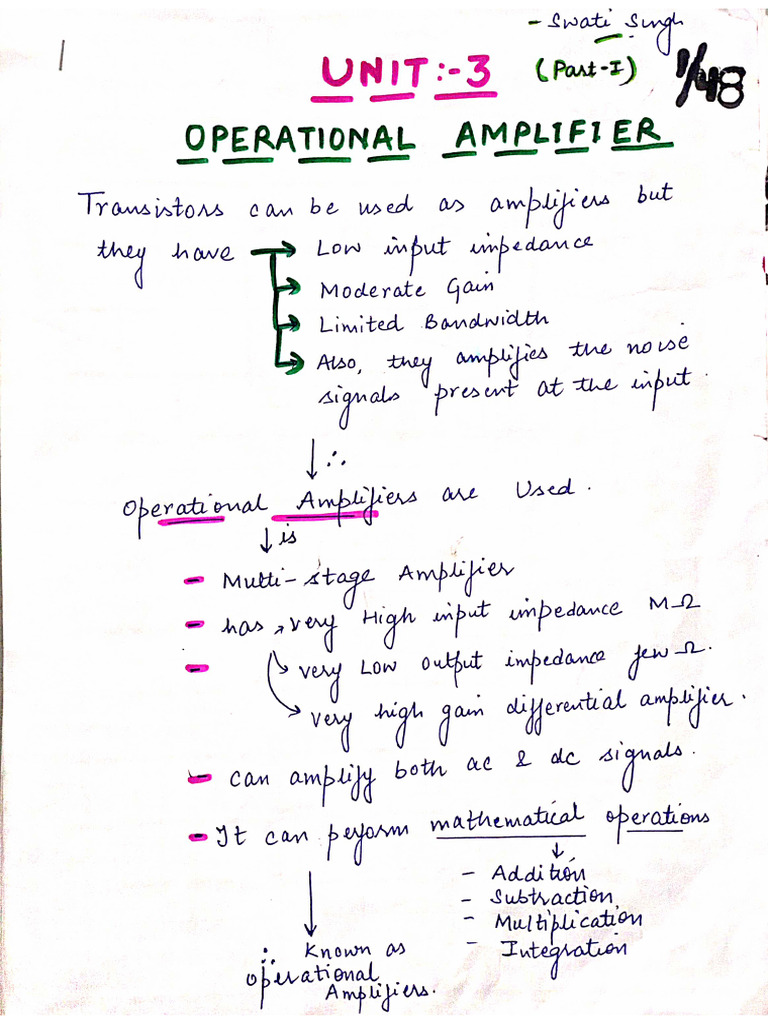 - Swati Singh
1
UNIT:-3 (Part-I) 1/48
OPERATIONAL AMPLIFIER
Transistors can be used as amplifiers but
they have → Low input impedance
→ Moderate Gain
→ Limited Bandwidth
→ Also, they amplifies the noise
signals present at the input.
↓ ∴
Operational Amplifiers are Used.
↓ is
- Multi-stage Amplifier
- has, very High input impedance MΩ
- very Low output impedance few Ω.
very high gain differential amplifier.
- can amplify both ac & dc signals.
- It can perform mathematical operations
- Addition
- Subtraction
- Multiplication
- Integration
∴ Known as
operational
Amplifiers.